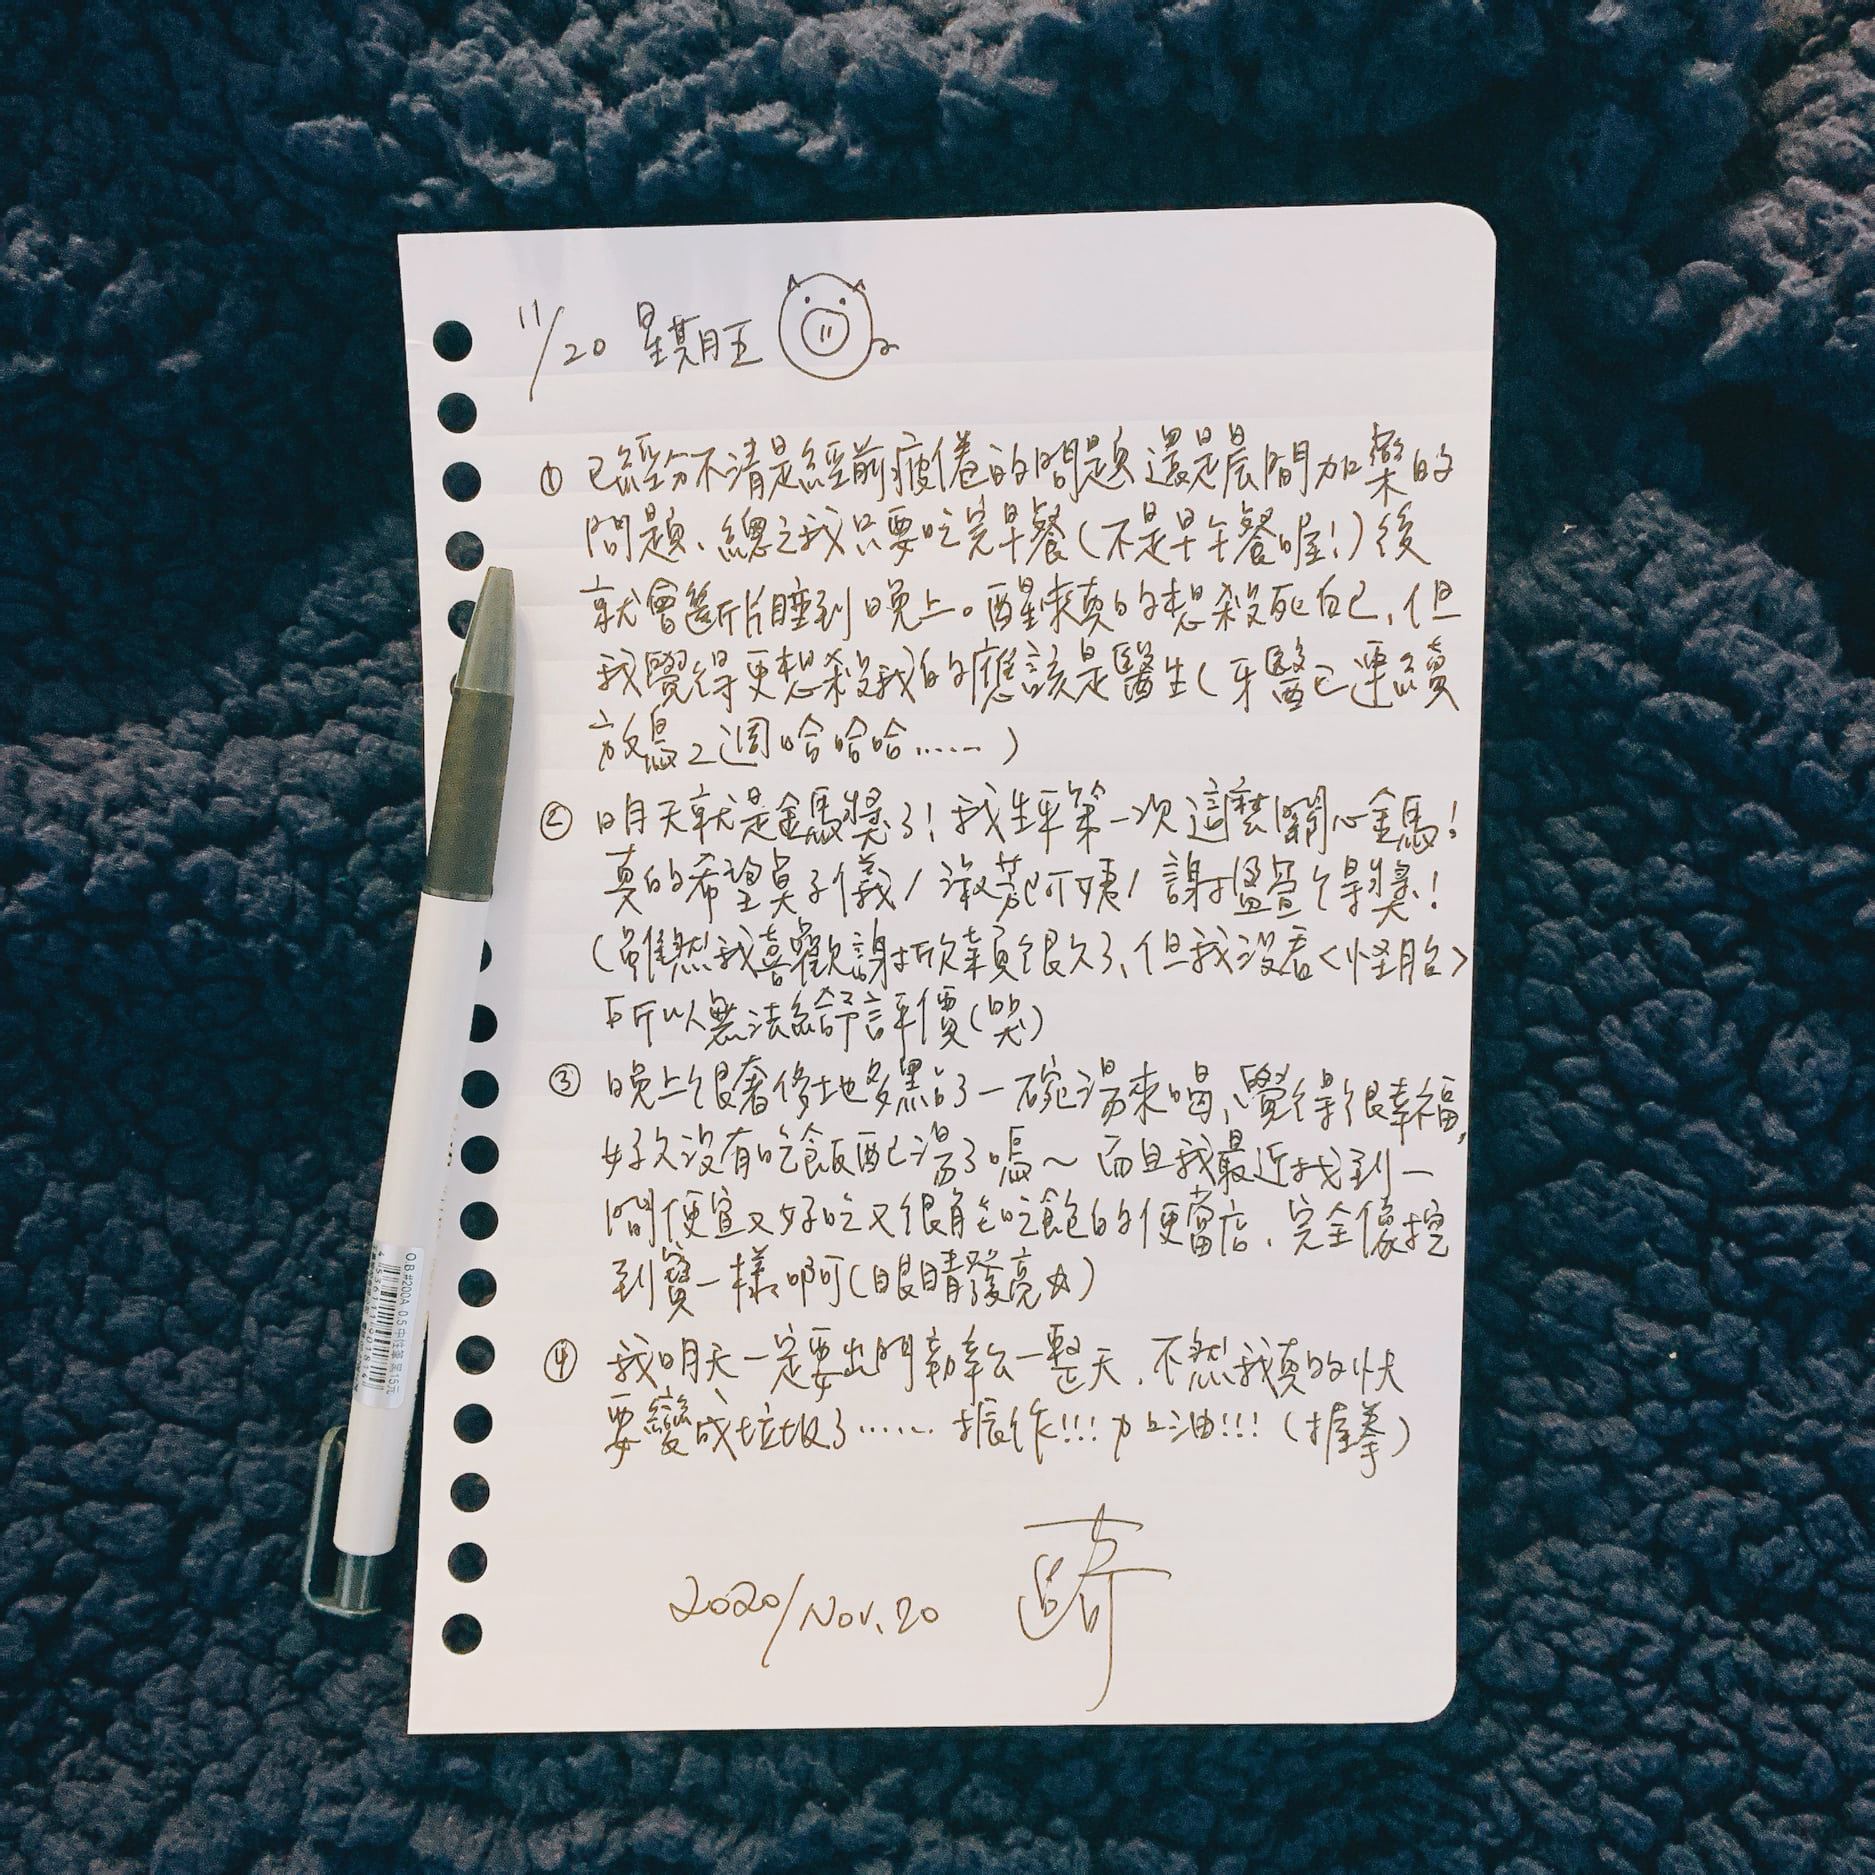 11/20 星期五
① 已經分不清是經前疲倦的問題還是晨間加藥的
問題、總之我只要吃完早餐(不是早午餐喔!)後
就會斷片睡到晚上。醒來真的想殺死自己、但
我覺得更想殺我的應該是醫生(牙醫已連續
放鳥2週哈哈哈……)
② 明天就是金馬獎了!我生平第一次這麼關心金馬!
真的希望莫子儀/淑芳阿姨/謝盈萱得獎!
(雖然我喜歡謝欣穎很久了、但我沒看<怪胎>
所以無法給予評價(哭)
③ 晚上很奢侈地多點了一碗湯來喝、覺得很幸福,
好久沒有吃飯配湯了嗚~而且我最近找到一
間便宜又好吃又很有吃飽的便當店、完全像挖
到寶一樣啊(眼睛發亮☆)
④ 我明天一定要出門勤奮一整天、不然我真的快
要變成垃圾了……振作!!!加油!!!(握拳)
2020/Nov.20
O.B#200A 0.5 中性筆 黑15元